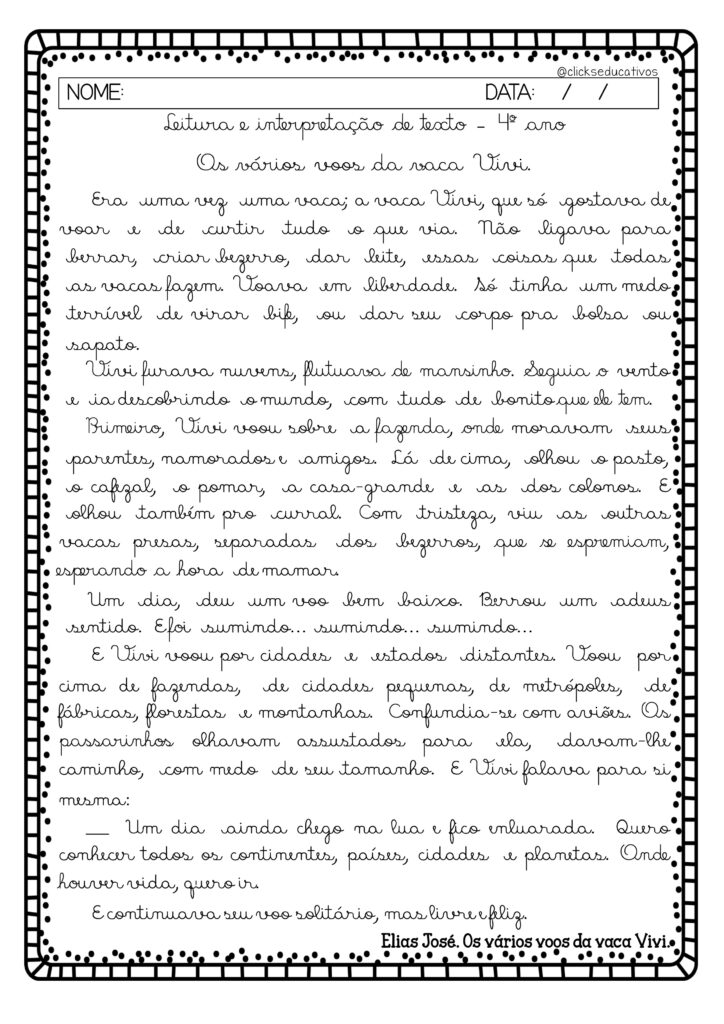 @clickseducativos
NOME: DATA: / /
Leitura e interpretação de texto - 4º ano
Os vários voos da vaca Vivi.
Era uma vez uma vaca; a vaca Vivi, que só gostava de
voar e de curtir tudo o que via. Não ligava para
berrar, criar bezerro, dar leite, essas coisas que todas
as vacas fazem. Voava em liberdade. Só tinha um medo
terrível de virar bife, ou dar seu corpo pra bolsa ou
sapato.
Vivi furava nuvens, flutuava de mansinho. Seguia o vento
e ia descobrindo o mundo, com tudo de bonito que ele tem.
Primeiro, Vivi voou sobre a fazenda, onde moravam seus
parentes, namorados e amigos. Lá de cima, olhou o pasto,
o cafezal, o pomar, a casa-grande e as dos colonos. E
olhou também pro curral. Com tristeza, viu as outras
vacas presas, separadas dos bezerros, que se espremiam,
esperando a hora de mamar.
Um dia, deu um voo bem baixo. Berrou um adeus
sentido. E foi sumindo... sumindo... sumindo...
E Vivi voou por cidades e estados distantes. Voou por
cima de fazendas, de cidades pequenas, de metrópoles, de
fábricas, florestas e montanhas. Confundia-se com aviões. Os
passarinhos olhavam assustados para ela, davam-lhe
caminho, com medo de seu tamanho. E Vivi falava para si
mesma:
__ Um dia ainda chego na lua e fico enluarada. Quero
conhecer todos os continentes, países, cidades e planetas. Onde
houver vida, quero ir.
E continuava seu voo solitário, mas livre e feliz.
Elias José. Os vários voos da vaca Vivi.